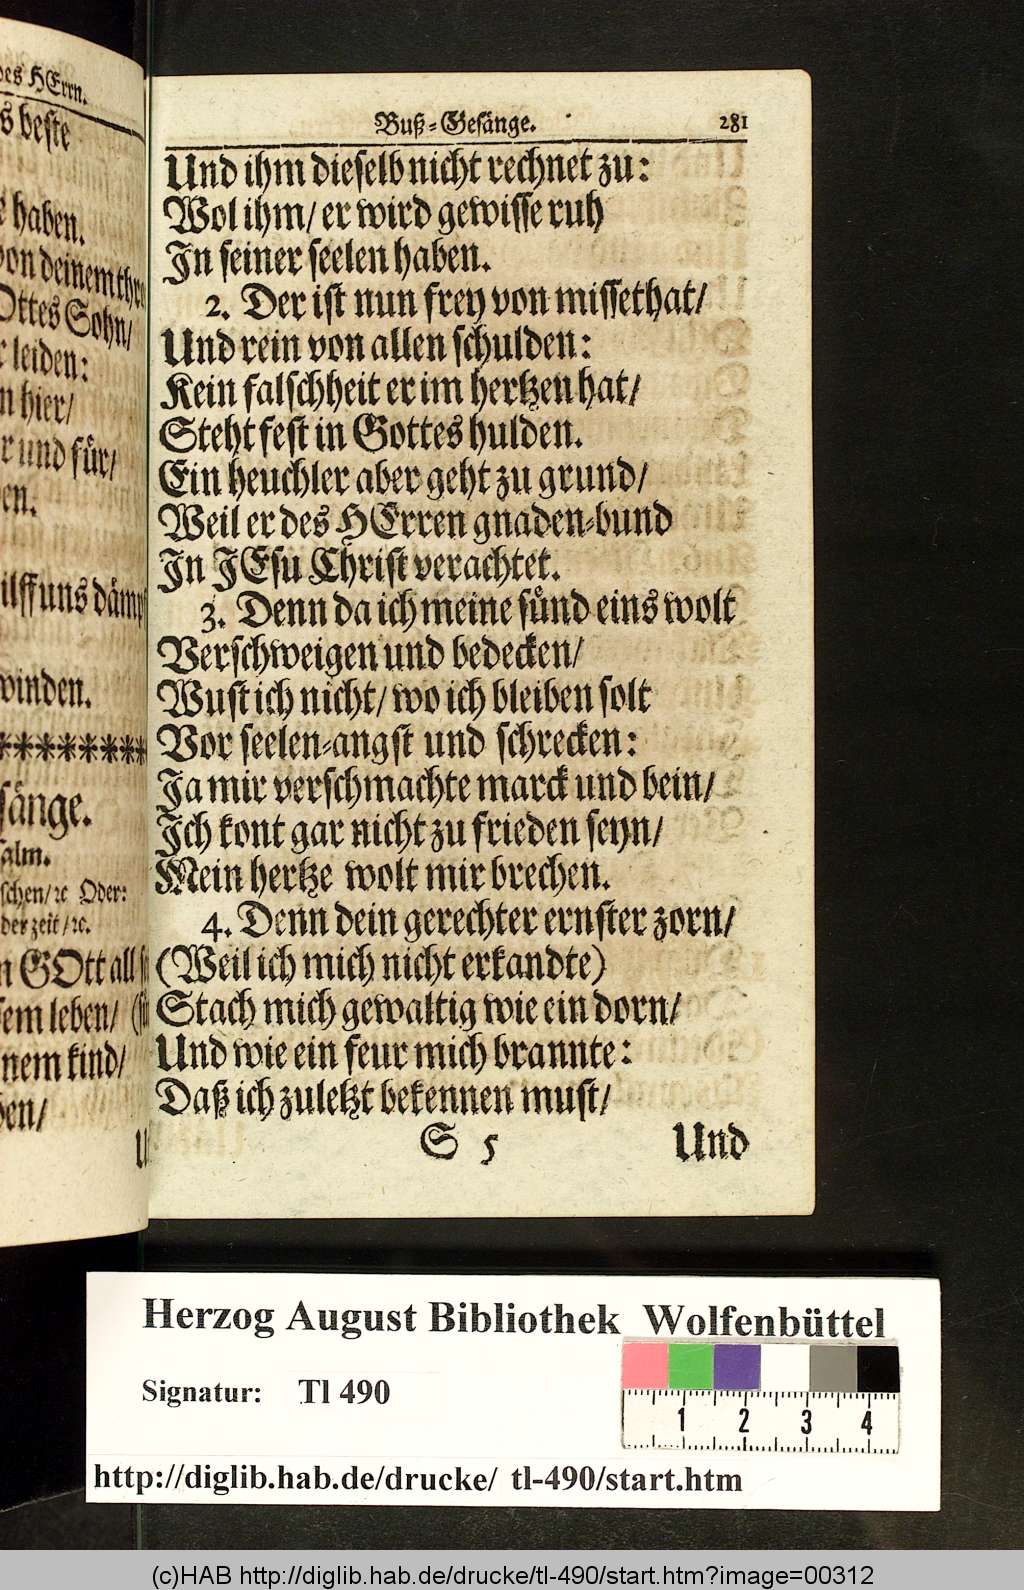 des HErrn.
s beste
haben.
von deinem
Ottes Sohn/
leiden:
hier/
und für/
en.
ilff uns
winden.
***********
sänge.
salm.
schen/ ꝛc Oder:
der zeit/ ꝛc.
n GOtt all
sem leben/
nem kind/
ben/
Buß-Gesänge. 281
Und ihm dieselb nicht rechnet zu:
Wol ihm/ er wird gewisse ruh
In seiner seelen haben.
2. Der ist nun frey von missethat/
Und rein von allen schulden:
Kein falschheit er im hertzen hat/
Steht fest in Gottes hulden.
Ein heuchler aber geht zu grund/
Weil er des HErren gnaden-bund
In JEsu Christ verachtet.
3. Denn da ich meine sünd eins wolt
Verschweigen und bedecken/
Wust ich nicht/ wo ich bleiben solt
Vor seelen-angst und schrecken:
Ja mir verschmachte marck und bein/
Ich kont gar nicht zu frieden seyn/
Mein hertze wolt mir brechen.
4. Denn dein gerechter ernster zorn/
(Weil ich mich nicht erkandte)
Stach mich gewaltig wie ein dorn/
Und wie ein feur mich brannte:
Daß ich zuletzt bekennen must/
S 5 Und
Herzog August Bibliothek Wolfenbüttel
Signatur: Tl 490
1 2 3 4
http://diglib.hab.de/drucke/ tl-490/start.htm
(c)HAB http://diglib.hab.de/drucke/tl-490/start.htm?image=00312